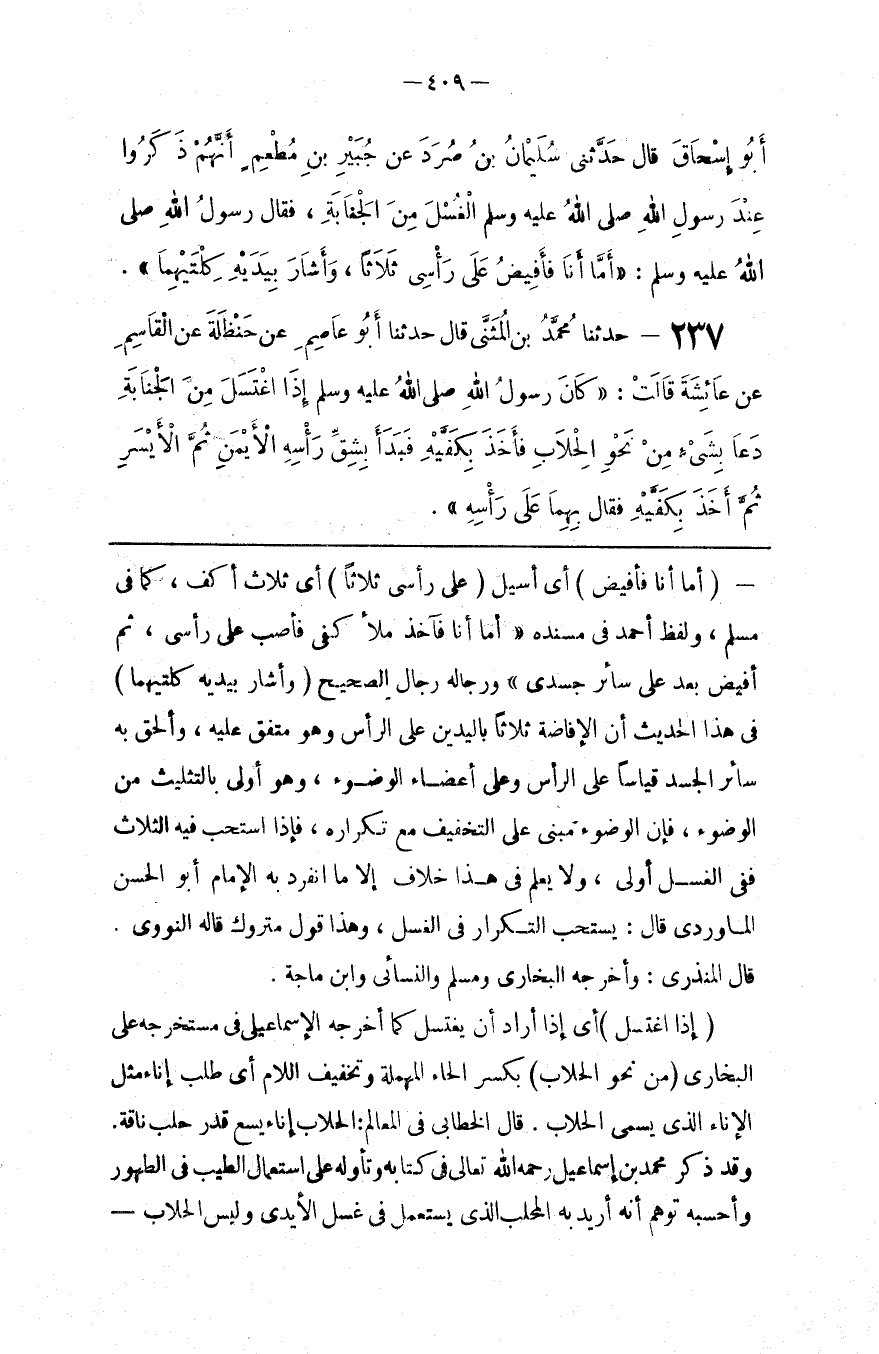 — ٤٠٩ —
أَبُو إِسْحَاقَ قال حَدَّثنى سُلَيْمَانُ بنُ صُرَدَ عن جُبَيْرِ بنِ مُطْعِمٍ أَنَّهُمْ ذَكَرُوا
عِنْدَ رسولِ اللهِ صلى اللهُ عليه وسلم الْغُسْلَ مِنَ الْجَنَابَةِ ، فقال رسولُ اللهِ صلى
اللهُ عليه وسلم : «أَمَّا أَنَا فَأُفِيضُ عَلَى رَأْسِى ثَلَاثاً ، وَأَشَارَ بِيَدَيْهِ كِلْتَيْهِمَا » .
٢٣٧ — حدثنا مُحمَّدُ بن الْمُثَنَّى قال حدثنا أَبُو عاَصِمٍ عن حَنْظَلَةَ عن الْقَاسِمِ
عن عَائِشَةَ قاَلَتْ : « كَانَ رسولُ اللهِ صلى اللهُ عليه وسلم إِذَا اغْتَسَلَ مِنَ الْجَنَابَةِ
دَعاَ بِشَىْءٍ مِنْ نَحْوِ الْحِلَابِ فأَخَذَ بِكَفَّيْهِ فَبَدَأَ بِشِقِّ رَأْسِهِ الْأَيْمَنِ ثُمَّ الْأَيْسَرِ
ثُمَّ أَخَذَ بِكَفَّيْهِ فقال بِهِماَ عَلَى رَأْسِهِ » .
— ( أما أنا فأفيض ) أى أسيل ( على رأسى ثلاثاً ) أى ثلاث أكف ، كما فى
مسلم ، ولفظ أحمد فى مسنده « أما أنا فآخذ ملأ كفى فأصب على رأسى ، ثم
أفيض بعد على سائر جسدى » ورجاله رجال الصحيح ( وأشار بيديه كلتيهما )
فى هذا الحديث أن الإفاضة ثلاثاً باليدين على الرأس وهو متفق عليه ، وألحق به
سائر الجسد قياساً على الرأس وعلى أعضـاء الوضـوء ، وهو أولى بالتثليث من
الوضوء ، فإن الوضوء مبنى على التخفيف مع تـكراره ، فإذا استحب فيه الثلاث
ففى الغســل أولى ، ولا يعلم فى هـذا خلاف إلا ما انفرد به الإمام أبو الحسن
المـاوردى قال : يستحب التـكرار فى الغسل ، وهذا قول متروك قاله النووى .
قال المنذرى : وأخرجه البخارى ومسلم والنسائى وابن ماجة .
( إذا اغتسل )أى إذا أراد أن يغتسل كما أخرجه الإسماعيلى فى مستخرجه على
البخارى (من نحو الحلاب) بكسر الحاء المهملة وتخفيف اللام أى طلب إناء مثل
الإناء الذى يسمى الحلاب . قال الخطابى فى المعالم:الحلاب إناء يسع قدر حلب ناقة.
وقد ذكر محمد بن إسماعيل رحمه الله تعالى فى كتابه وتأوله على استعمال الطيب فى الطهور
وأحسبه توهم أنه أريد به المحلب الذى يستعمل فى غسل الأيدى وليس الحلاب —